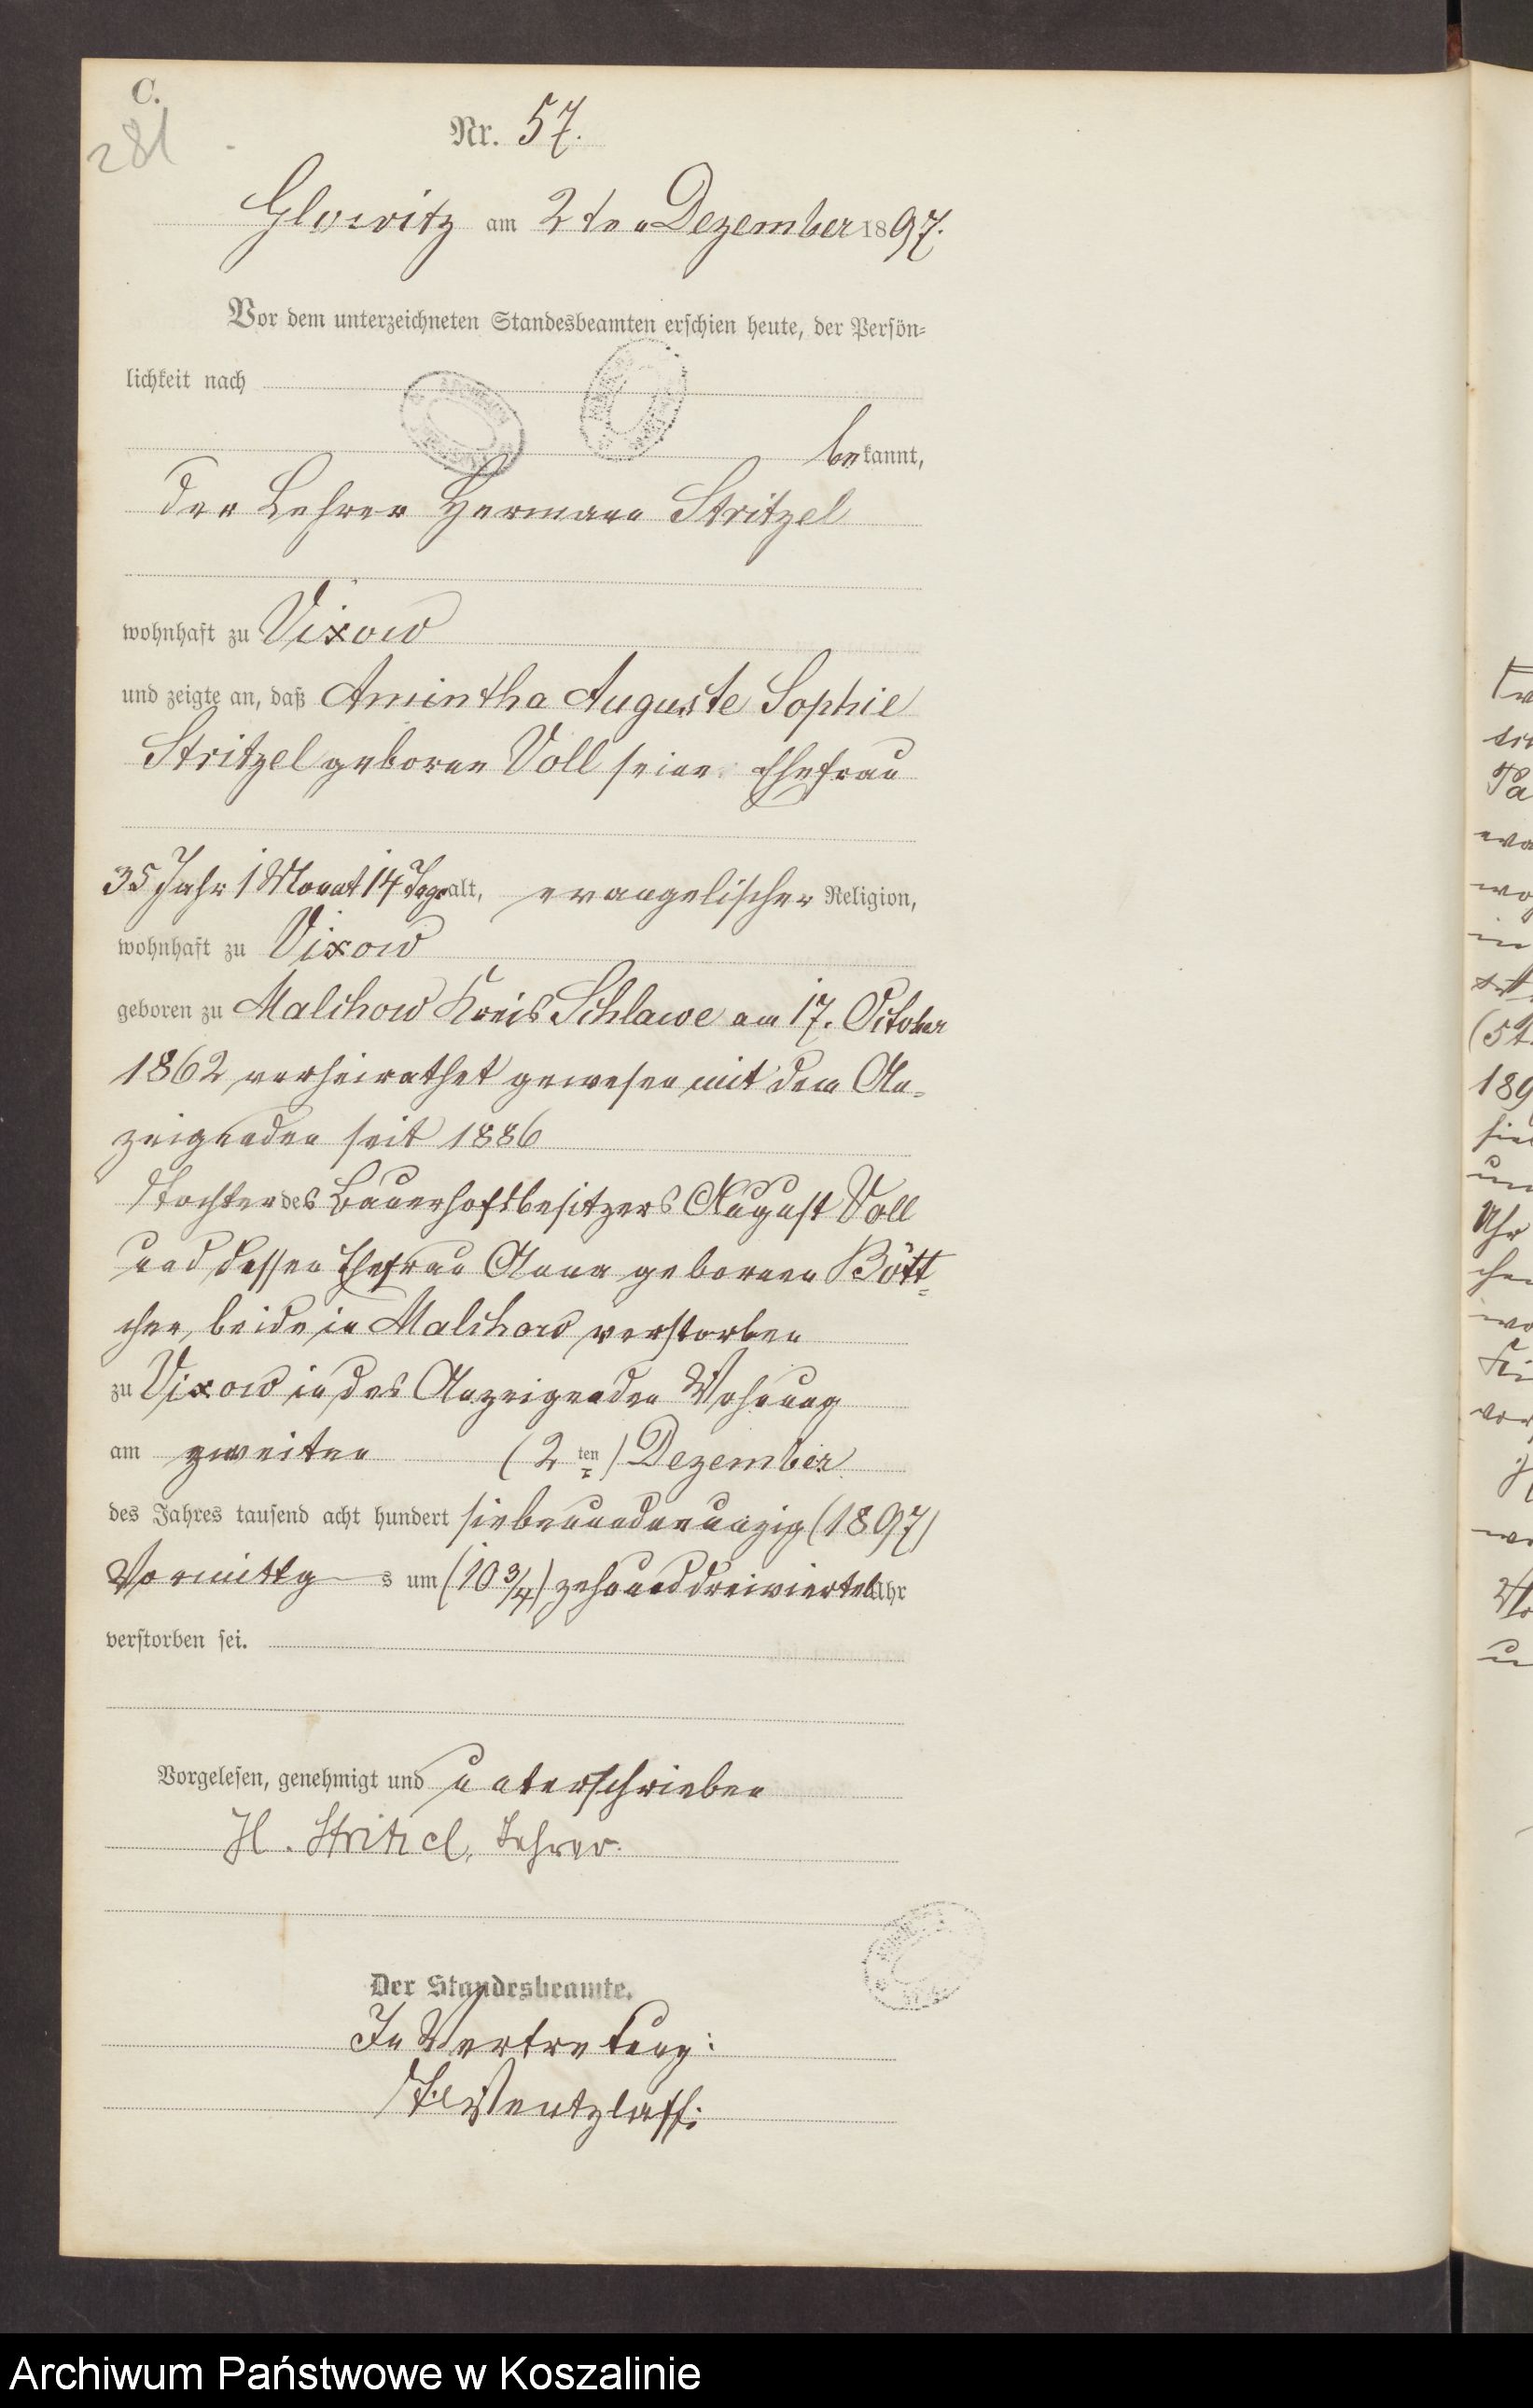 C.
281
Nr. 57.
Glowitz am 2ten Dezember 1897.
Vor dem unterzeichneten Standesbeamten erschien heute, der Persön-
lichkeit nach
bekannt,
der Lehrer Hermann Stritzel
wohnhaft zu Vixow
und zeigte an, daß Amintha Auguste Sophie
Stritzel geborne Voll seine Ehefrau
35 Jahr 1 Monat 14 Tage alt, evangelischer Religion,
wohnhaft zu Vixow
geboren zu Malchow Kreis Schlawe am 17. October
1862 verheirathet gewesen mit dem An-
zeigenden seit 1886
Tochter des Bauerhofsbesitzers August Voll
und dessen Ehefrau Anna gebornen Bött-
cher, beide in Malchow verstorben
zu Vixow in des Anzeigenden Wohnung
am zweiten (2 ten) Dezember
des Jahres tausend acht hundert siebenundneunzig (1897)
Vormittags um (10 3/4) zehnunddreiviertel Uhr
verstorben sei.
Vorgelesen, genehmigt und unterschrieben
H. Stritzel, Lehrer.
Der Standesbeamte.
In Vertretung:
Wentzlaff
Archiwum Państwowe w Koszalinie